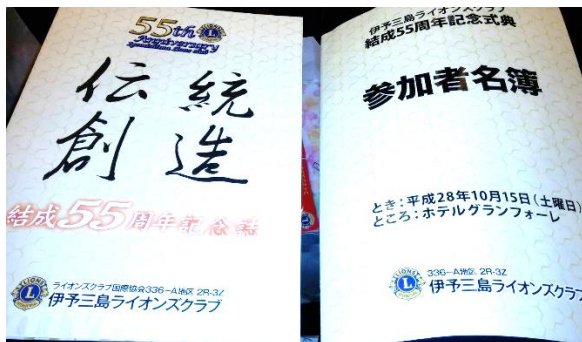 55th
Anniversary
伝統
創造
結成55周年記念誌
ライオンズクラブ国際協会336-A地区 2R-3Z
伊予三島ライオンズクラブ
伊予三島ライオンズクラブ
結成55周年記念式典
参加者名簿
とき:平成28年10月15日(土曜日)
ところ:ホテルグランフォーレ
336-A地区 2R-3Z
伊予三島ライオンズクラブ